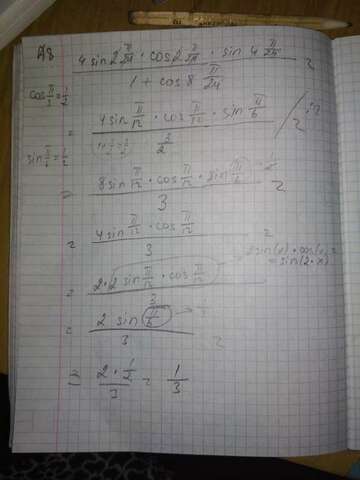 A8
4 sin 2 π/24 · cos 2 π/24 · sin 4 π/24 =
1 + cos 8 π/24
cos π/3 = 1/2
= 4 sin π/12 · cos π/12 · sin π/6
1+1/2=3/2 3/2
sin π/6 = 1/2
= 8 sin π/12 · cos π/12 · sin π/6 1/2 =
3
= 4 sin π/12 · cos π/12 =
3
= 2 · 2 sin π/12 · cos π/12
3
= sin(2·x)
= 2 sin π/6 → 1/2 =
3
= 2 · 1/2 / 3 = 1/3